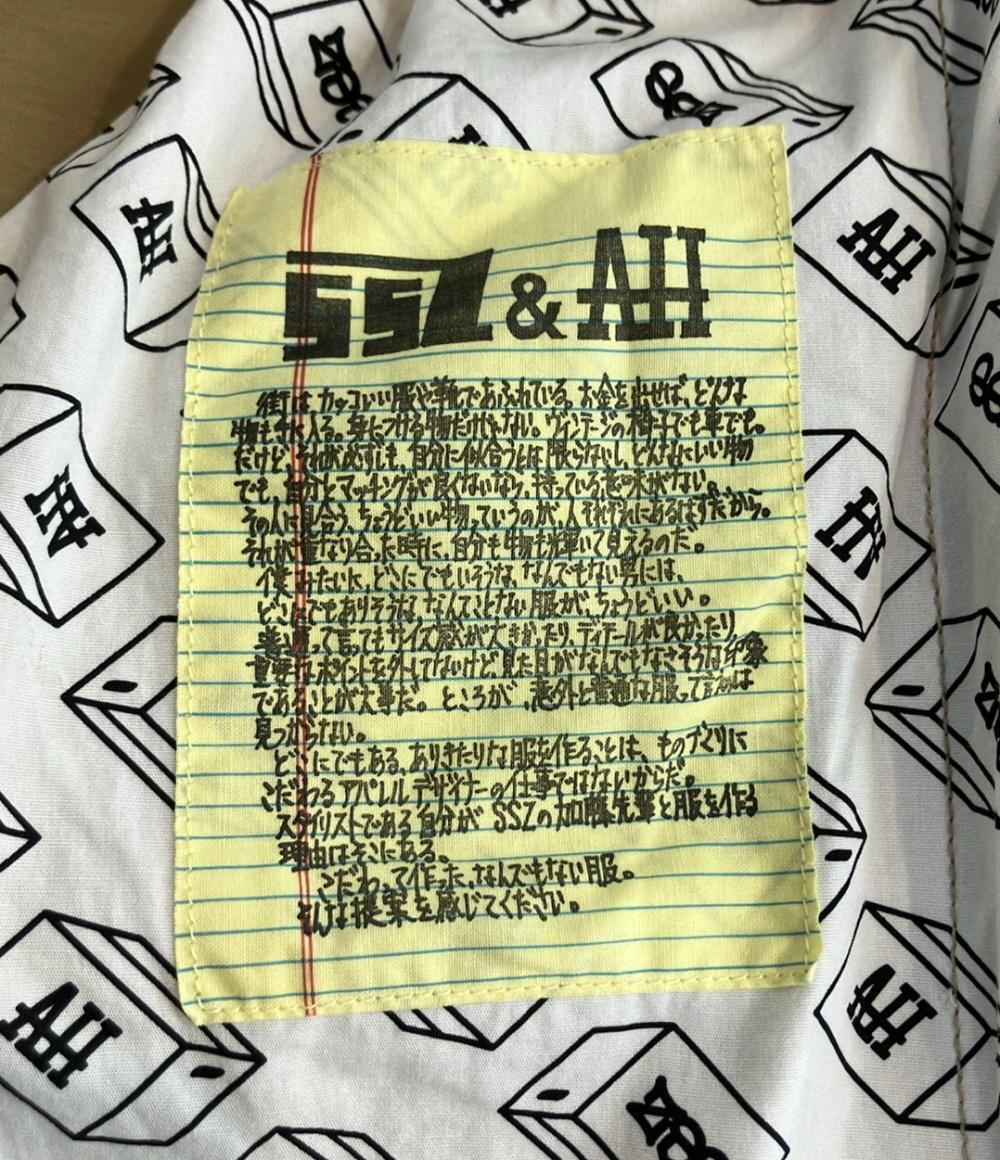 SSZ
AH
SSZ
AH
AH
SSZ & AH
街はカッコいい服や靴であふれている。お金を出せば、どんな
物も手に入る。身につける物だけじゃない。ヴィンテージの椅子でも車でも。
だけど、それが必ずしも、自分に似合うとは限らないし、どんなにいい物
でも、自分とマッチングが良くないなら、持っている意味がない。
その人に見合う、ちょうどいい物っていうのが、人それぞれにあるはずだから。
それが重なり合った時に、自分も物も光輝いて見えるのだ。
僕みたいに、どこにでもいそうな、なんでもない男には、
どこにでもありそうな、なんてことない服が、ちょうどいい。
普通って言ってもサイズ感が大きかったり、ディテールが良かったり、
重要なポイントを外してないけど、見た目がなんでもなさそうな印象
であることが大事だ。ところが、意外と普通な服って言うのは
見つからない。
どこにでもある、ありきたりな服を作ることは、ものづくりに
こだわるアパレルデザイナーの仕事ではないからだ。
スタイリストである自分が SSZの加藤先輩と服を作る
理由はそこにある。
こだわって作った、なんでもない服。
そんな提案を感じてください。
AH
AH
AH
AH
SSZ